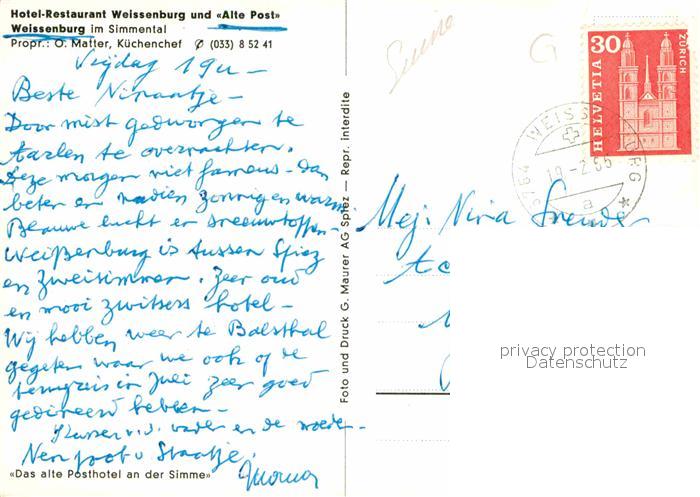 Hotel-Restaurant Weissenburg und «Alte Post»
Weissenburg im Simmental
Propr.: O. Matter, Küchenchef ✆ (033) 8 52 41
Vrijdag 19u –
Beste Ninaatje –
Door mist gedwongen te
Aarlen te overnachten.
Deze morgen niet fameus – dan
beter en nadien zonnig en warm
Blauwe lucht en sneeuwtoppen –
Weißenburg is tussen Spiez
en Zweisimmen. Zeer oud
en mooi zwitsers hotel –
Wij hebben weer te Balsthal
gegeten waar we ook op de
terugreis in Juli zeer goed
gedineerd hebben –
Kussen v.d. vader en de moeder –
«Das alte Posthotel an der Simme»
Foto und Druck G. Maurer AG Spiez — Repr. Interdite
Suisse
G
30
HELVETIA
ZÜRICH
3764 WEISSENBURG
19.-2.65
a
Mej. Nina
privacy protection
Datenschutz